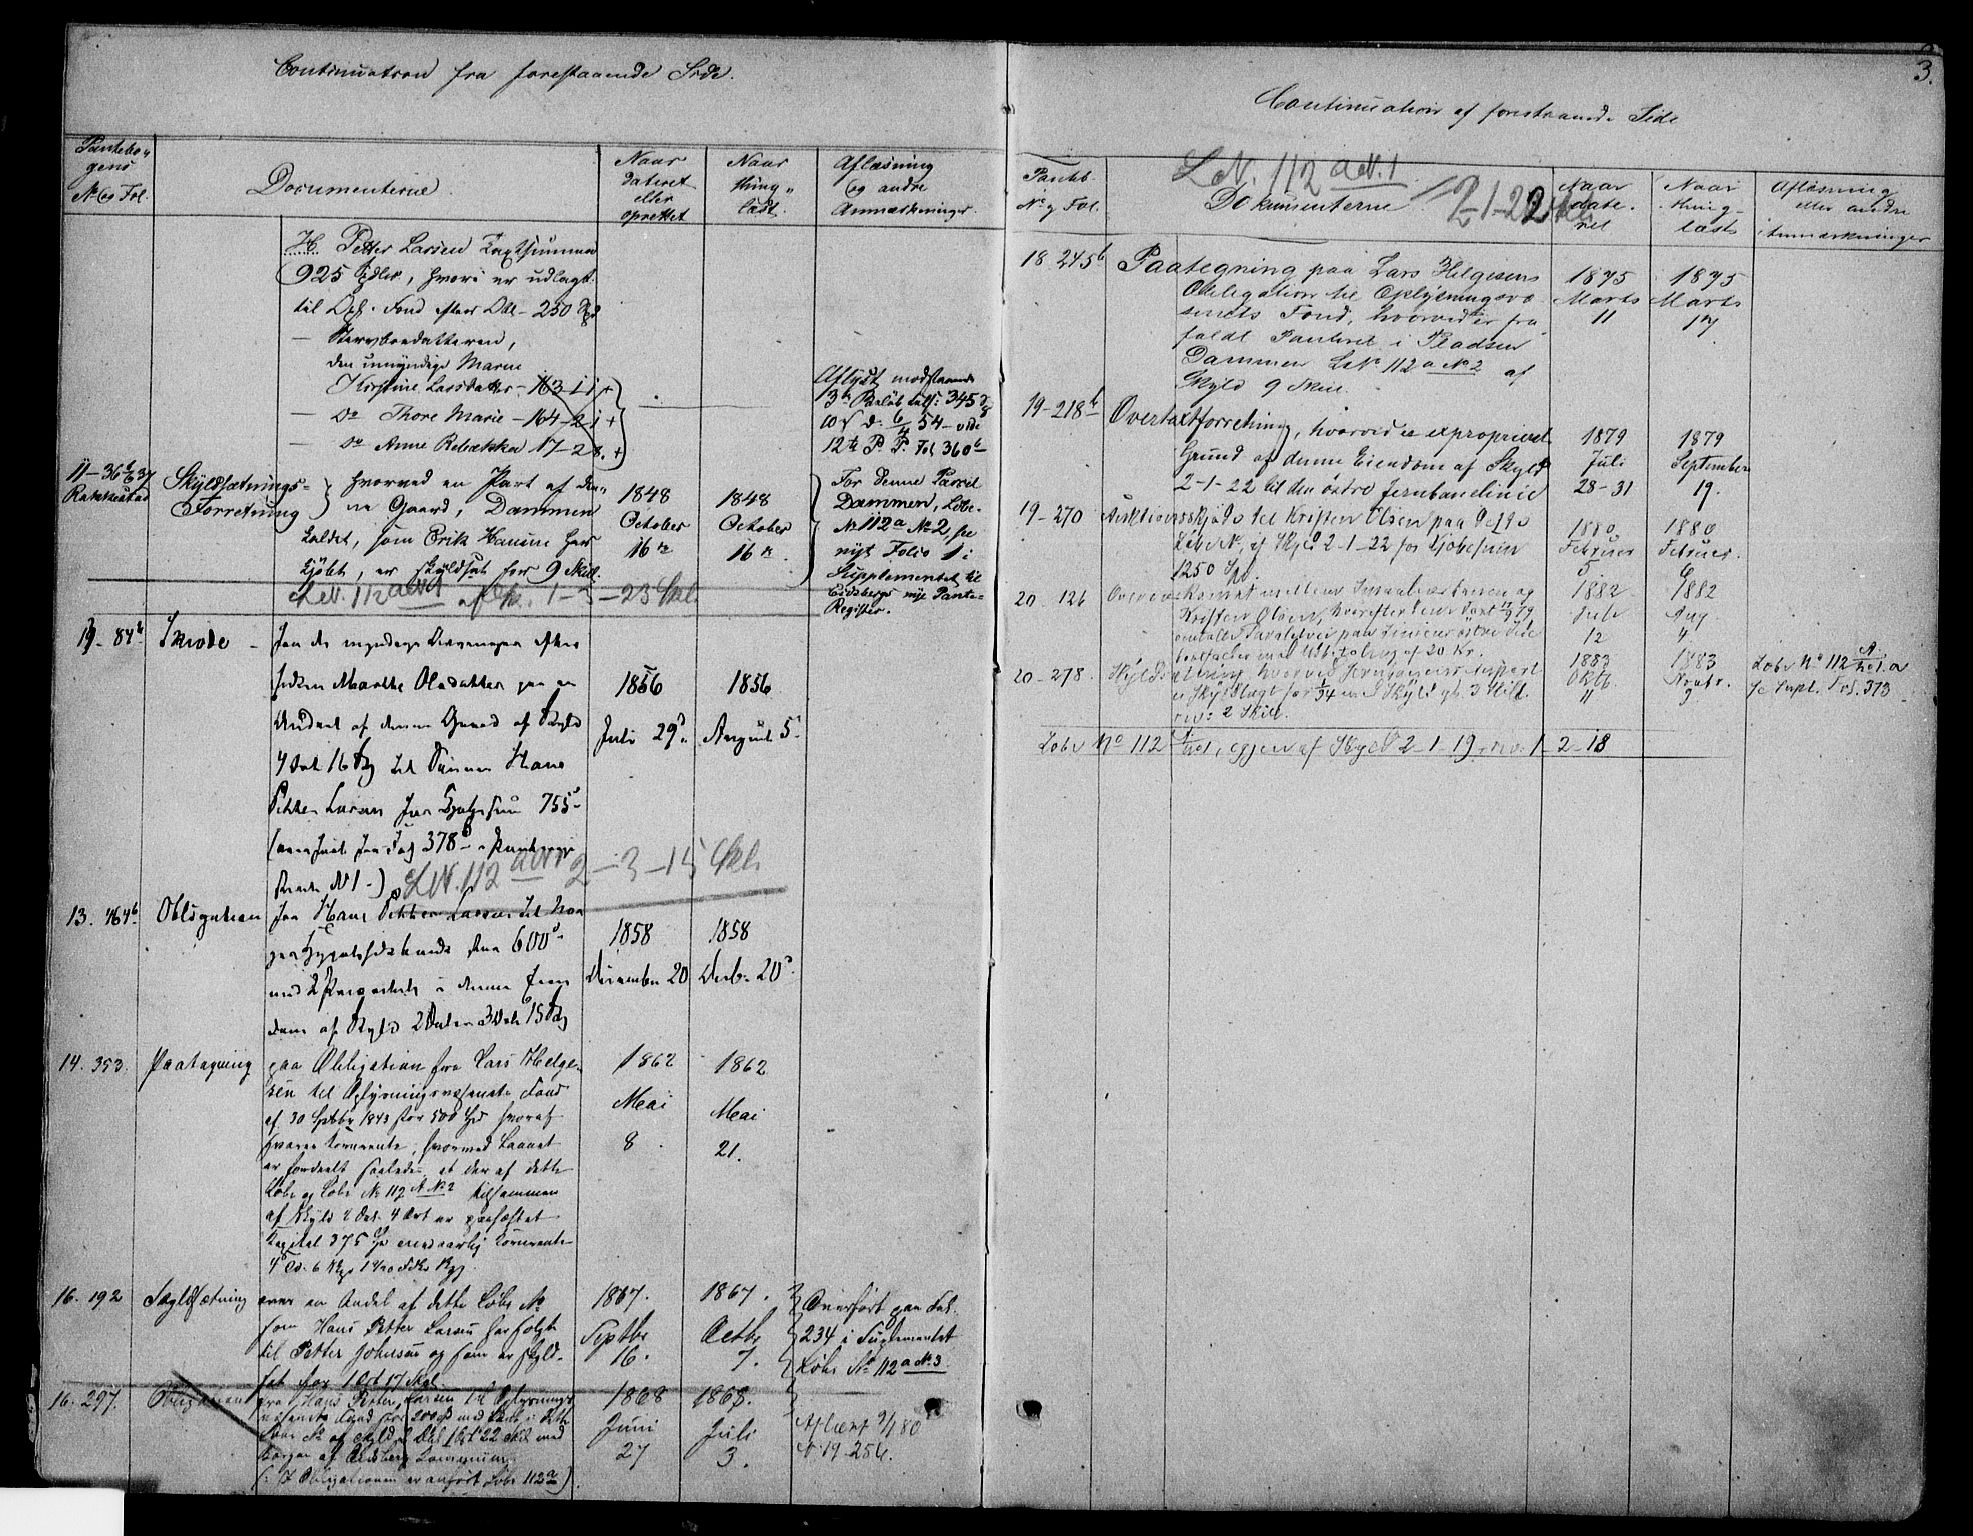 Continuation fra forestaaende Side.
Pantebo„
gens
No og Fol.
Documenterne
Naar
dateret
eller
oprettet
Naar
thing„
læst.
Aflæsning
og andre
Anmærkninger.
H. Petter Larsen
925 Spdlr, hvori er udlagt
til Opl. Fond efter Obl- 250 Spd
— Stervboedatteren,
den umyndige Maren
Kirstine Larsdatter - 163-1 i +
— Do Thore Marie - 164-2 i +
— Do Anne Rebækka 17-28. +
Aflyst modstaaende
345
54 - vide
12te P. P. Fol 360b
11-36
Rakkestad
Skyldsætnings-
Forretning
hvorved en Part af den-
ne Gaard, Dammen
kaldet, som Erik Hansen har
kjøbt, er skyldsat for 9 Skill.
1848
October
16de
1848
October
16de
For denne Parcel
Dammen, Løbe-
No 112a No 2, se
nyt Folio 1 i
Supplementet til
Eidsbergs nye Pante-
Register.
L.N. 112 a No 1 af Sk. 1-3-23 Skl.
84b
Skiøde -
fra de myndige Arvinger efter
Marthe Olsdatter paa en
Andeel af denne Gaard af Skyld
4 Ort 16 til Sønnen Hans
Petter Larsen for Kjøbesum 755
Fol 378b
No 1-)
1856
Juli 29de
1856
August 5te
L.N. 112 a No 1 2-3-15 Skl.
13. 464b
Obligation
fra Hans Petter Larsen til Nor
ges Hypothekbank stor 600
med Prioritet i denne Eien
dom af Skyld 2 Daler 3 Ort 15
1858
December 20
1858
Decb. 20de
14. 353.
Paategning
paa Obligation fra Lars Helge-
sen til Oplysningsvæsenets Fond
af 30 Septbr 1843 stor 500 Spd hvoraf
svares Kornrente, hvormed Laanet
er fordeelt saaledes at der af dette
Løbe og Løbe No 112 A No 2 tilsammen
af Skyld 2 Dal. 4 Ort er paahæftet
Kapital 375 Spd med aarlig Kornrente
1862
Meai
8
1862
Meai
21.
16. 192
Skyldsætning
over en Andel af dette Løbe No
som Hans Petter Larsen har solgt
til Petter Johnsen og som er skyld-
sat for 1 Ort 17 Skl.
1867.
Septbr
16.
1867.
Octbr
7.
Overført paa Fol.
234 i Suplementet
Løbe No 112 a No 3
16. 297.
Obligation
fra Hans Petter Larsen til Oplysnings
væsenets Fond for 200 Spd med Pant i dette
Løbe No af Skyld 2 Dal 1 Ort 22 Skl med
Borgen af Eidsberg Kommune.
(: I Obligationen er anført Løbe 112a)
1868
Juni
27
1868.
Juli
3.
Aflæst 9/1 80
19-256.
3.
Continuation af forestaaende Side
Panteb.
No og Fol.
L.N. 112 a N. 1
Dokumenterne
2-1-22 Skl.
Naar
date-
ret
Naar
thing-
læst
Afløsning
eller andre
Anmærkninger
18 245b
Paategning paa Lars Helgesens
Obligation til Oplysningsvæ
senets Fond, hvorved er fra
faldt Panteret i Pladsen
Dammen LNo 112a No 2 af
Skyld 9 Skill.
1875
Marts
11
1875
Marts
17
19-218b
Overtaxtforretning, hvorved er exproprieret
Grund af denne Eiendom af Skyld
2-1-22 til den østre Jernbanelinie
1879
Juli
28-31
1879
September
19.
19-270
Auktionsskjøde til Kristen Olsen paa dette
Løbe No, af Skyld 2-1-22 for Kjøbesum
1250 Spd.
1880
Februar
5
1880
Februar.
6
20. 126
Overenskomst mellem Smaalensbanen og
Kristen Olsen, hvorefter den
omtalte Parallelvei paa Liniens østre Side
bortfalder mod Udbetaling af 20 Kr.
1882
Juli
12
1882
Aug
4.
20-278.
Skyldsætning, hvorved
er Skyldlagt for
rev: 2 Skill.
1883
Oktb
11
1883
Novbr.
9
Løbe No 112
Se Supl. Fol. 373
Løbe No 112 igjen af Skyld 2-1-19 - rev. 1-2-18